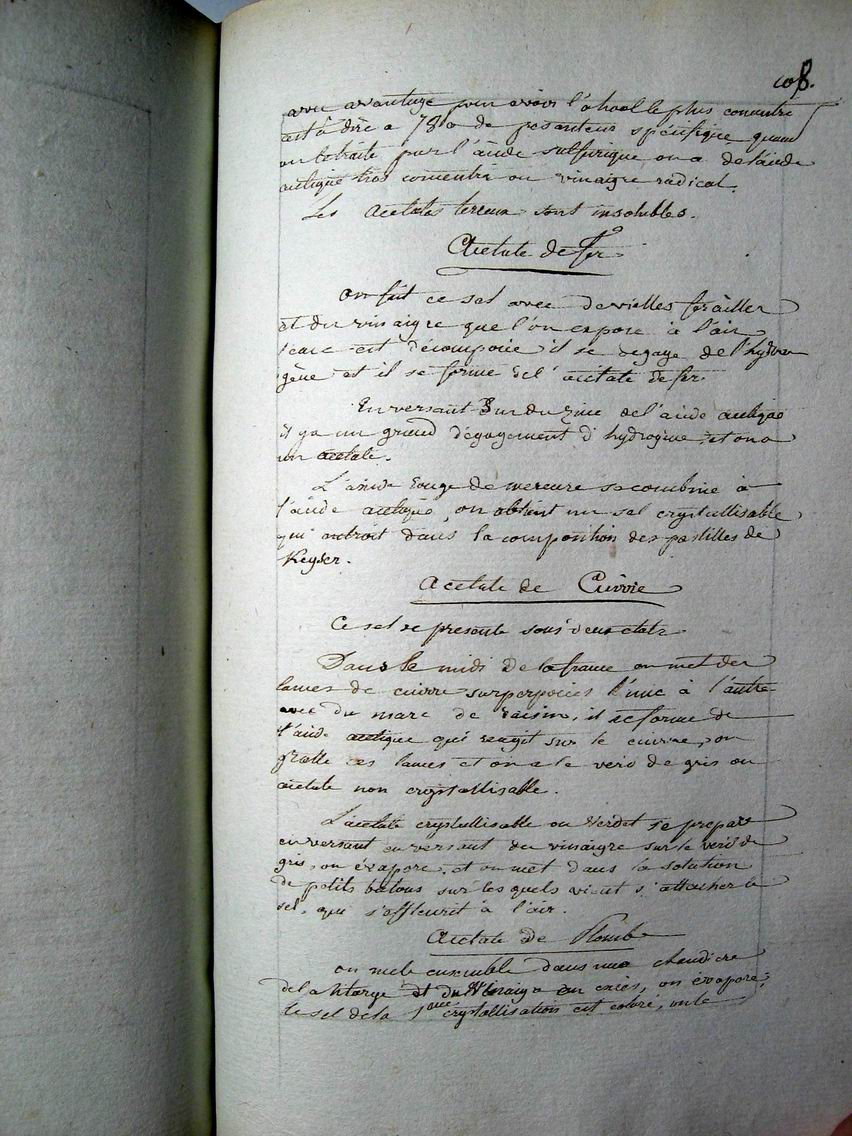 108.
avec avantage pour avoir l'alcool le plus concentré
c'est à dire a 780 de pesanteur spécifique quand
on le traite par l'acide sulfurique on a de l'acide
acétique très concentré ou vinaigre radical.
Les acétates terreux sont insolubles.
Acétate de fer
On fait ce sel avec de vielles ferailles
et du vinaigre que l'on expose à l'air
l'eau est décomposée il se degage de l'hydro
gène et il se forme de l'acétate de fer.
En versant sur du zinc de l'acide acétique
il y a un grand dégagement d'hydrogène, et on a
un acétate.
L'oxide rouge de mercure se combine à
l'acide acétique, on obtient un sel crystallisable
qui entroit dans la composition des pastilles de
Keyser.
Acétate de Cuivre
Ce sel se presente sous deux états
Dans le midi de la france on met des
lames de cuivre surperposées l'une à l'autre
avec du marc de raisin, il se forme de
l'acide acétique qui reagit sur le cuivre, on
gratte ces lames et on a le verd de gris ou
acétate non crystallisable.
L'acétate crystallisable ou Verdet se prepare
en versant en versant du vinaigre sur le verd de
gris, on évapore, et on met dans la solution
de petits batons sur lesquels vient s'attacher le
sel, qui s'effleurit à l'air.
Acétate de Plomb
on mele ensemble dans une chaudiere
de la litarge et du Vinaigre en excés, on évapore;
le sel de la 1ere crystallisation est coloré, on le